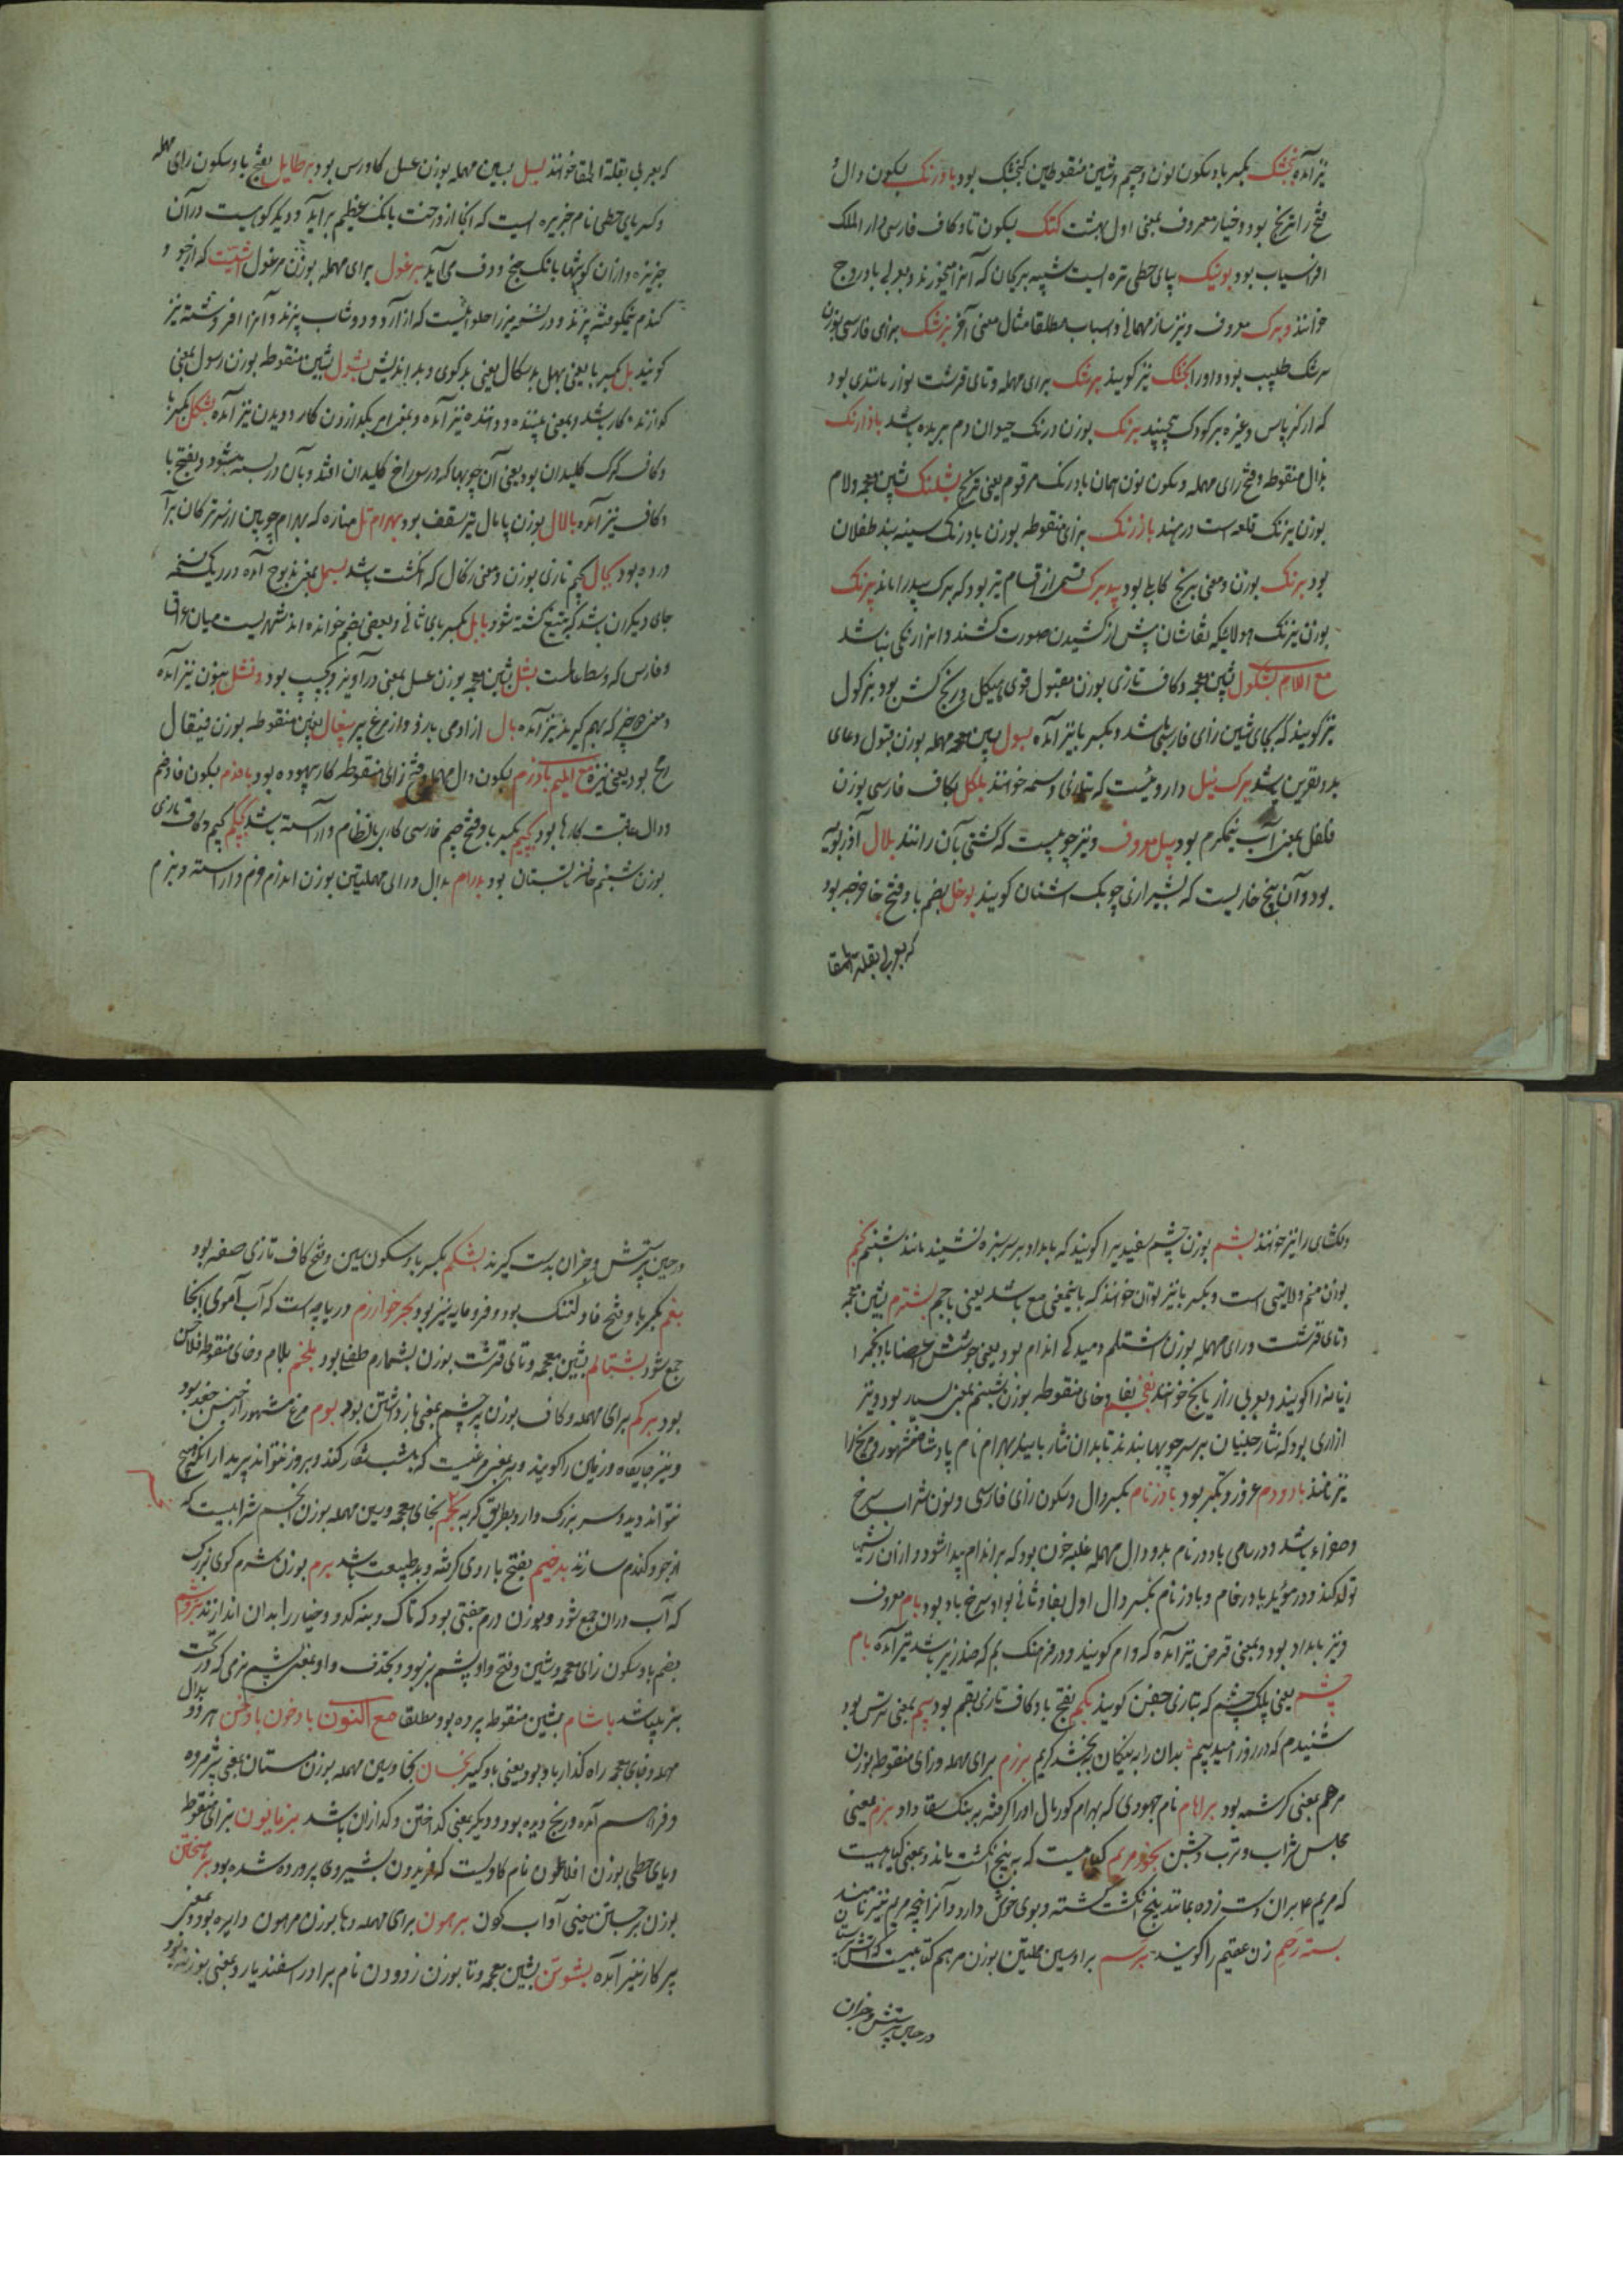 نیز آمده بنجشک بکسر با و سکون نون و جیم و شین منقوطین کنجشک بود بادرنک بسکون دال و
فتح را ترنج بود و خیار معروف بمعنی اول بهشت کنک بسکون تا و کاف فارسی دار الملک
افراسیاب بود بوینک بیای حطی تره است شبیه بریحان که آنرا میخورند و بعربی بادروج
خوانند و برک معروف و نیز ساز مهمانی و اسباب مطلقا مثال معنی آخر بزشک بزای فارسی بوزن
سرشک طبیب بود و او را بجشک نیز کویند برشتک برای مهمله و تای قرشت بوزن
که از کرباس و غیره بر کودک پیچند برنک بوزن درنک حیوان دم بریده باشد باذرنک
بذال منقوطه و فتح رای مهمله و سکون نون همان بادرنک مرقوم یعنی ترنج بشلنک بشین معجمه و لام
بوزن نیرنک قلعه است در هند بازرنک بزای منقوطه بوزن بادرنک سینه بند طفلان
بود برنک بوزن و معنی برنج کابلی بود بید برک قسمی از اقسام تیر بود که ببرک بید را ماند بیرنک
بوزن نیرنک هیولائیکه نقاشان پیش از کشیدن صورت کشند و انرا رنکی نباشد
مع اللام بشکول بشین معجمه و کاف تازی بوزن مقبول قوی هیکل و رنج کش بود بژکول
نیز کویند که بجای شین زای فارسی باشد و بکسر با نیز آمده بسول بسین مهمله بوزن قبول دعای
بد و نفرین باشد برک نیل داروئیست که بتازی وسمه خوانند بلکل بکاف فارسی بوزن
فلفل بمعنی آب نیمکرم بود بیل معروف و نیز چوبیست که کشتی بآن رانند بلال آذربویه
بود و آن بیخ خاریست که بشیرازی چوبک اشنان کویند بوخل بضم با و فتح خا فرفه بود
که بعربی بقلة الحمقا
که بعربی بقلة الحمقا خوانند بسل بسین مهمله بوزن عسل کاورس بود برطایل بفتح با و سکون رای مهمله
و کسر یای حطی نام جزیره است که انجا از درخت بانک عظیم براید و دیکر کوهیست در آن
جزیره و از آن کوه شبها بانک چنک و دف می آید برغول برای مهمله بوزن مرغول آشیست که از جو و
کندم نیمکوفته پزند و در نسخه میرزا حلوائیست که از آرد و دوشاب پزند و آنرا افروشته نیز
کویند بل بکسر با یعنی بهل بدسکال یعنی بدکوی و بداندیش بشول بشین منقوطه بوزن رسول بمعنی
کزارنده کار باشد و بمعنی بیننده و داننده نیز آمده و بمعنی امر بکذاردن کار و دیدن نیز آمده بشکل بکسر با
و کاف کژک کلیدان بود یعنی آن چوبها که در سوراخ کلیدان افتد و بآن در بسته میشود و بفتح با
و کاف نیز آمده بالال بوزن پامال تیر سقف بود بهرام تل مناره که بهرام چوبین از سر ترکان برآ
ورده بود بجال بجیم تازی بوزن و معنی زکال که انکشت باشد بسمل بمعنی مذبوح آمده در یک نسخه
جای دیکر آن باشد که بتیغ کشته شود بابل بکسر بای ثانی و بعضی بضم خوانده اند شهریست میان عراق
و فارس که وسط عالمست بشل بشین معجمه بوزن عسل بمعنی درآویز و بچسپ بود و نشل بنون نیز آمده
و بمعنی دو چیز که بهم کیرند نیز آمده بال از ادمی بازو و از مرغ پر بیغال بغین منقوطه بوزن قیفال
رمح بود یعنی نیزه مع المیم بادزم بسکون دال مهمله و فتح زای منقوطه کار بیهوده بود بافدم بسکون فا و ضم
دال عاقبت کارها بود بجیم بکسر با و فتح جیم فارسی کار بانظام و آراسته باشد بجکم بجیم و کاف تازی
بوزن شبنم خانه تابستان بود بدرام بدال و رای مهملتین بوزن اندام خرم و آراسته و بزم
دلکشای را نیز خوانند بشم بوزن چشم سفیدیرا کویند که بامداد بر سر سبزه نشیند مانند شبنم بجم
بوزن منم ولایتی است و بکسر با نیز توان خواند که باینمعنی مع باشد یعنی با جم بشترم بشین معجمه
و تای قرشت و رای مهمله بوزن اشتلم دمیدکی اندام بود یعنی جوشش اعضا بادتخم را
زیانه را کویند و بعربی رازیانج خوانند بغخم بفا و خای منقوطه بوزن شبنم بمعنی بسیار بود و نیز
ازاری بود که نثار چینان بر سر چوبها بندند تا بدان نثار بایند بهرام نام پادشاه مشهور و مریخ را
نیز نامند باد و دم غرور و تکبر بود بادژنام بکسر دال و سکون زای فارسی و نون شراب سرخ
و صفراء باشد و در سامی بادژنام بدو دال مهمله غلبه خون بود که بر اندام پیدا شود و از آن ریشها
تولد کند و در مؤید بادژفام و بادژنام بکسر دال اول بفا و ثانی بواو سرخ باد بود بام معروف
و نیز بامداد بود و بمعنی قرض نیز آمده که وام کویند و در فرهنک بم که ضد زیر باشد نیز آمده بام
چشم یعنی پلک چشم که بتازی جفن کویند بکم بفتح با و کاف تازی بقم بود بیم بمعنی ترس بود
شنیدم که در روز امید و بیم بدان را به نیکان ببخشد کریم برزم برای مهمله و زای منقوطه بوزن
مرهم بمعنی کرشمه بود براهام نام جهودی که بهرام کور مال او را کرفته به لنبک سقا داد بزم بمعنی
مجلس شراب و ترب و جشن بخور مریم کیاهیست که به پنج انکشت ماند و بعضی کیاهیست
که مریم ع بران دست زده بمانند پنج انکشت کشته و بوی خوش دارد و آنرا پنجه مریم نیز نامند
بسته رحم زن عقیم را کویند برسم برا و سین مهملتین بوزن مرهم کتابیست که آتش پرستان
در حین پرستش و جز آن
در حین پرستش و جز آن بدست کیرند بشکم بکسر با و سکون سین و فتح کاف تازی صفه بود
بفم بکسر با و فتح فا دلتنک بود و فرومایه نیز بود بحر خوارزم دریاچه است که آب آموی انجا
جمع شود بشتالم بشین معجمه و تای قرشت بوزن بشمارم طفیلی بود بلخم بلام و خای منقوطه فلاخن
بود برکم برای مهمله و کاف بوزن پرچم بمعنی بازداشتن بود بوم مرغ مشهور از جنس جغد بود
و نیز جایکاه و زمین را کویند و نیز بمعنی مرغیست که بشب شکار کند و بروز نتواند پرید از انکه هیچ
نتواند دید و سر بزرک دارد بطریق کربه بخسم بخای معجمه و سین مهمله بوزن انجم شرابیست که
از جو و کندم سازند بدخیم بفتح با روی کرفته و بدطبیعت باشد برم بوزن شرم کوی بزرک
که آب دران جمع شود و بوزن درم جفتی بود که تاک و بیه کدو و خیار را بدان اندازند بزوشم
بضم با و سکون زای معجمه و شین و فتح واو پشم بز بود و بحذف واو بمعنی پشم نرمی که در تحت
بز بباشد باشام بشین منقوطه پرده بود مطلقا مع النون بادخون بادخن هر دو بدال
مهمله و خای معجمه راه کذار باد بود یعنی بادکیر بخسان بخا و سین مهمله بوزن مستان بمعنی پژمرده
و فراهم آمده و رنج دیده بود و دیکر بمعنی کداختن و کدازان باشد بزمایون بزای منقوطه
و یای حطی بوزن افلاطون نام کاویست که فریدون بشیر وی پرورده شده بود برهیختن
بوزن برجستن یعنی آداب کون برهون برای مهمله و ها بوزن مرهون دایره بود و بمعنی
پرکار نیز آمده بشوتن بشین معجمه و تا بوزن زدودن نام برادر اسفندیار و بمعنی بوزینه بود